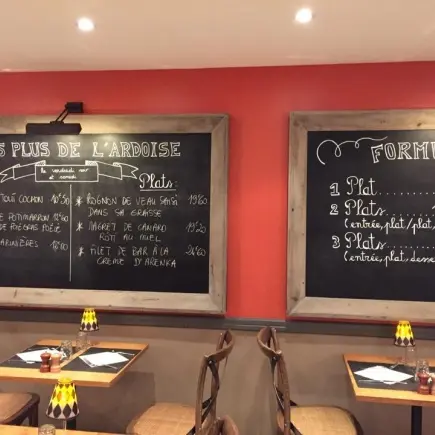 S PLUS DE L'ARDOISE
le vendredi soir
et samedi
TOUT COCHON
DE POTIMARRON
DE FOIE GRAS POÊLÉ
MARINIÈRES
Plats:
* ROGNON DE VEAU SAISI
DANS SA GRAISSE
* MAGRET DE CANARD
RÔTI AU MIEL
* FILET DE BAR À LA
CRÈME D'ARENKA
FORMU
1 Plat..........
2 Plats
(entrée, plat/plat,
3 Plats..........
(entrée, plat, desse